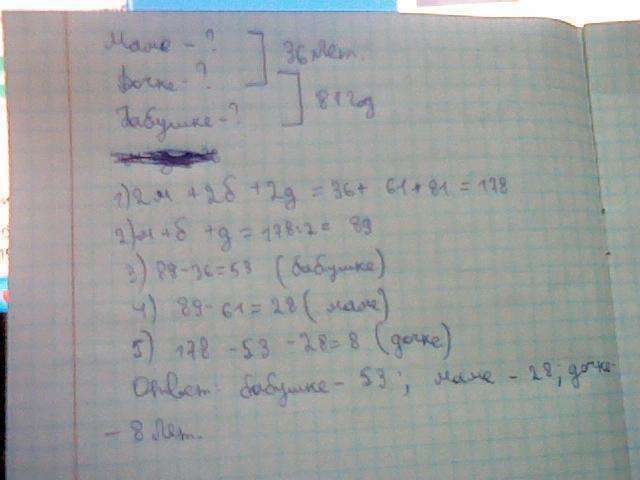 Маме - ?
Дочке - ?
36 лет.
Бабушке - ?
81 год
1) 2м + 2б + 2д = 36 + 61 + 81 = 178
2) м + б + д = 178:2 = 89
3) 89 - 36 = 53 (бабушке)
4) 89 - 61 = 28 (маме)
5) 178 - 53 - 28 = 8 (дочке)
Ответ: бабушке - 53; маме - 28; дочке
- 8 лет.